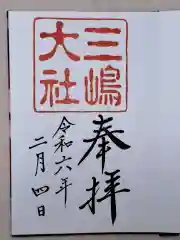 奉拝
三嶋
大社
令和六年
二月四日